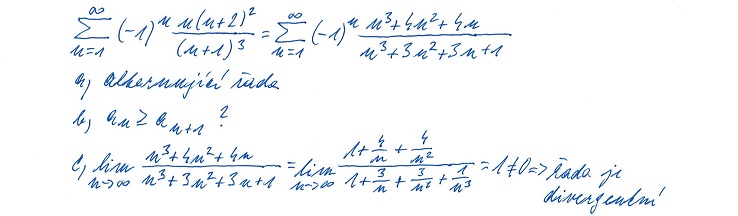 ∑_{n=1}^{∞} (-1)^n \frac{n(n+2)^2}{(n+1)^3} = ∑_{n=1}^{∞} (-1)^n \frac{n^3+4n^2+4n}{n^3+3n^2+3n+1}
a, alternující řada
b, a_n ≥ a_{n+1} ?
c, \lim_{n→∞} \frac{n^3+4n^2+4n}{n^3+3n^2+3n+1} = \lim_{n→∞} \frac{1+\frac{4}{n}+\frac{4}{n^2}}{1+\frac{3}{n}+\frac{3}{n^2}+\frac{1}{n^3}} = 1 ≠ 0 => řada je
divergentní